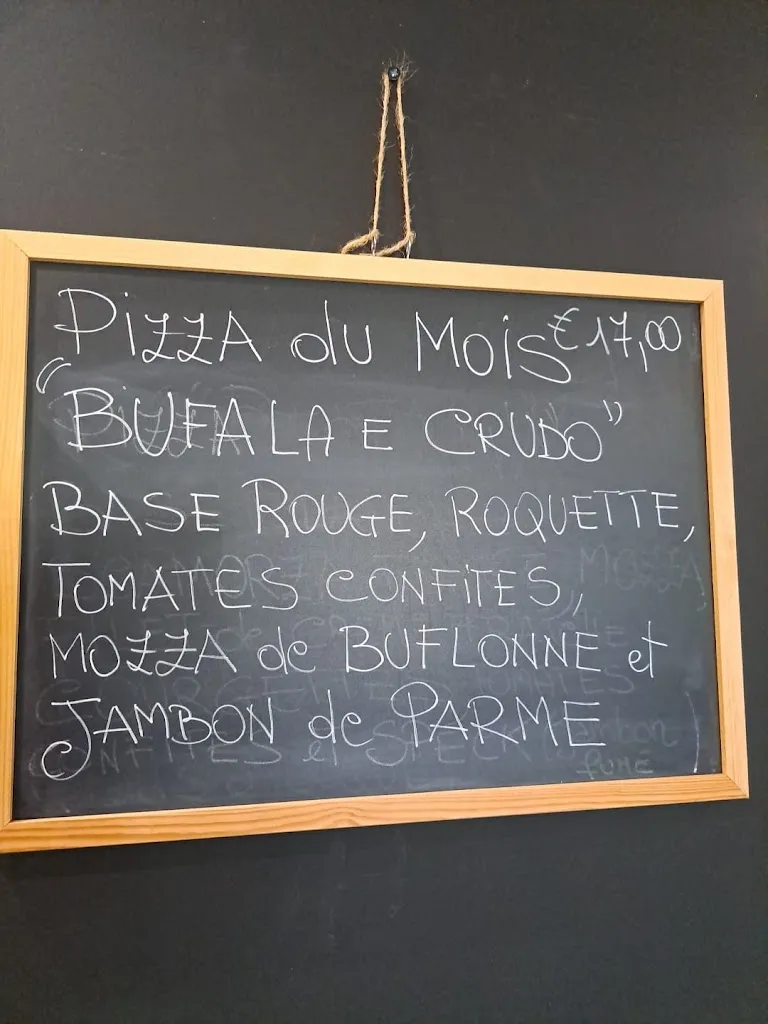 PiZZA du MOiS €17,00
"BUFALA E CRUDO"
BASE ROUGE, ROQUETTE,
TOMATES CONFiTES,
MOZZA de BUFLONNE et
JAMBON de PARME